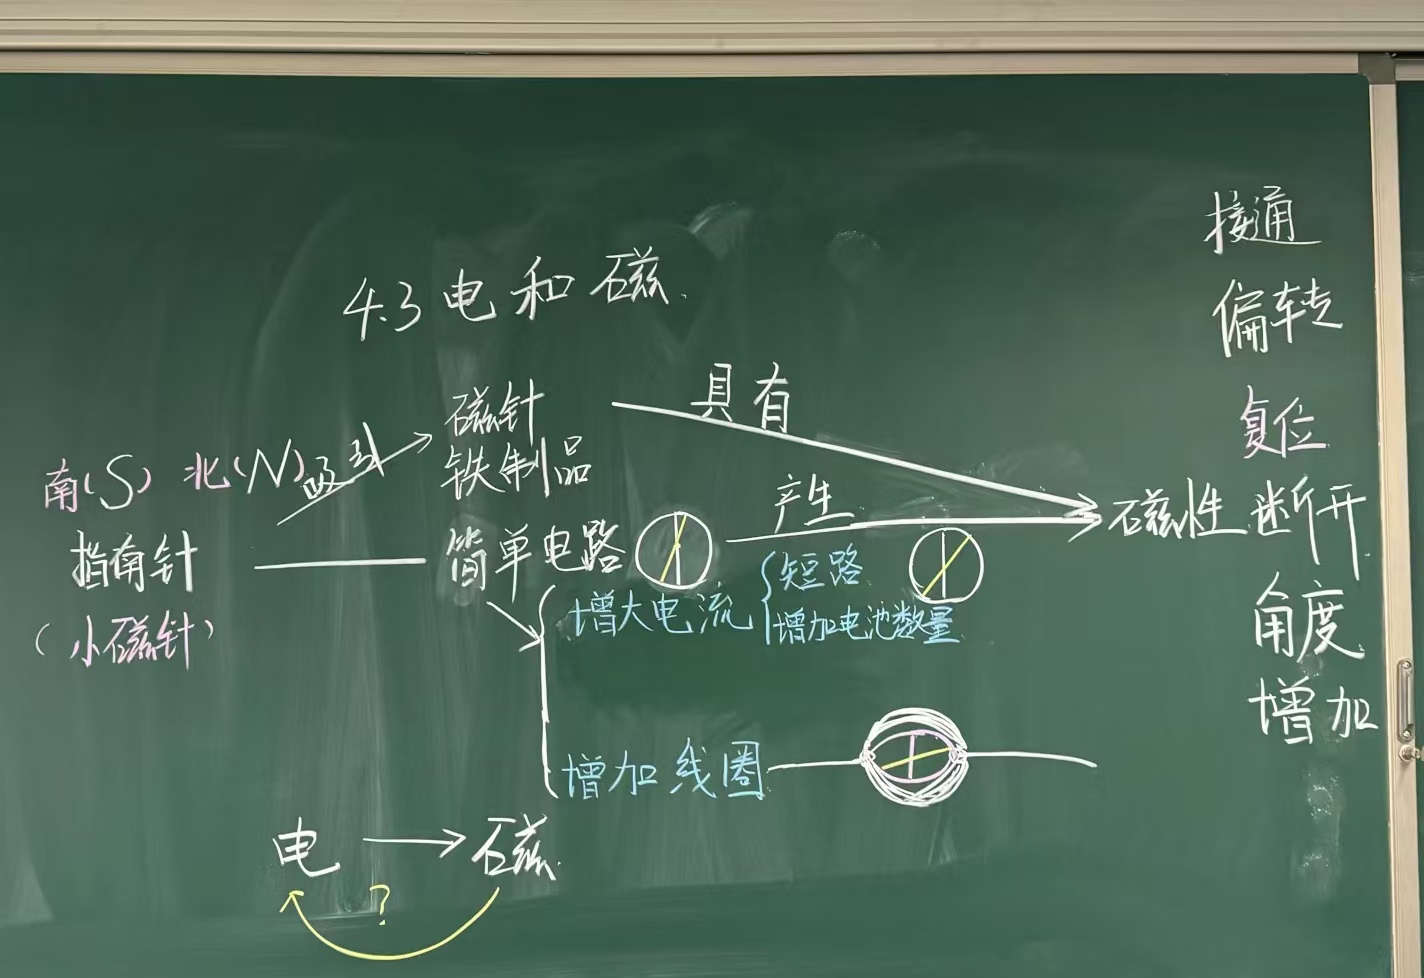 4.3 电和磁
南(S) 北(N)
指南针
(小磁针)
吸引
磁针
铁制品
简单电路
具有
产生
磁性
增大电流
短路
增加电池数量
增加线圈
电 → 磁
?
接通
偏转
复位
断开
角度
增加